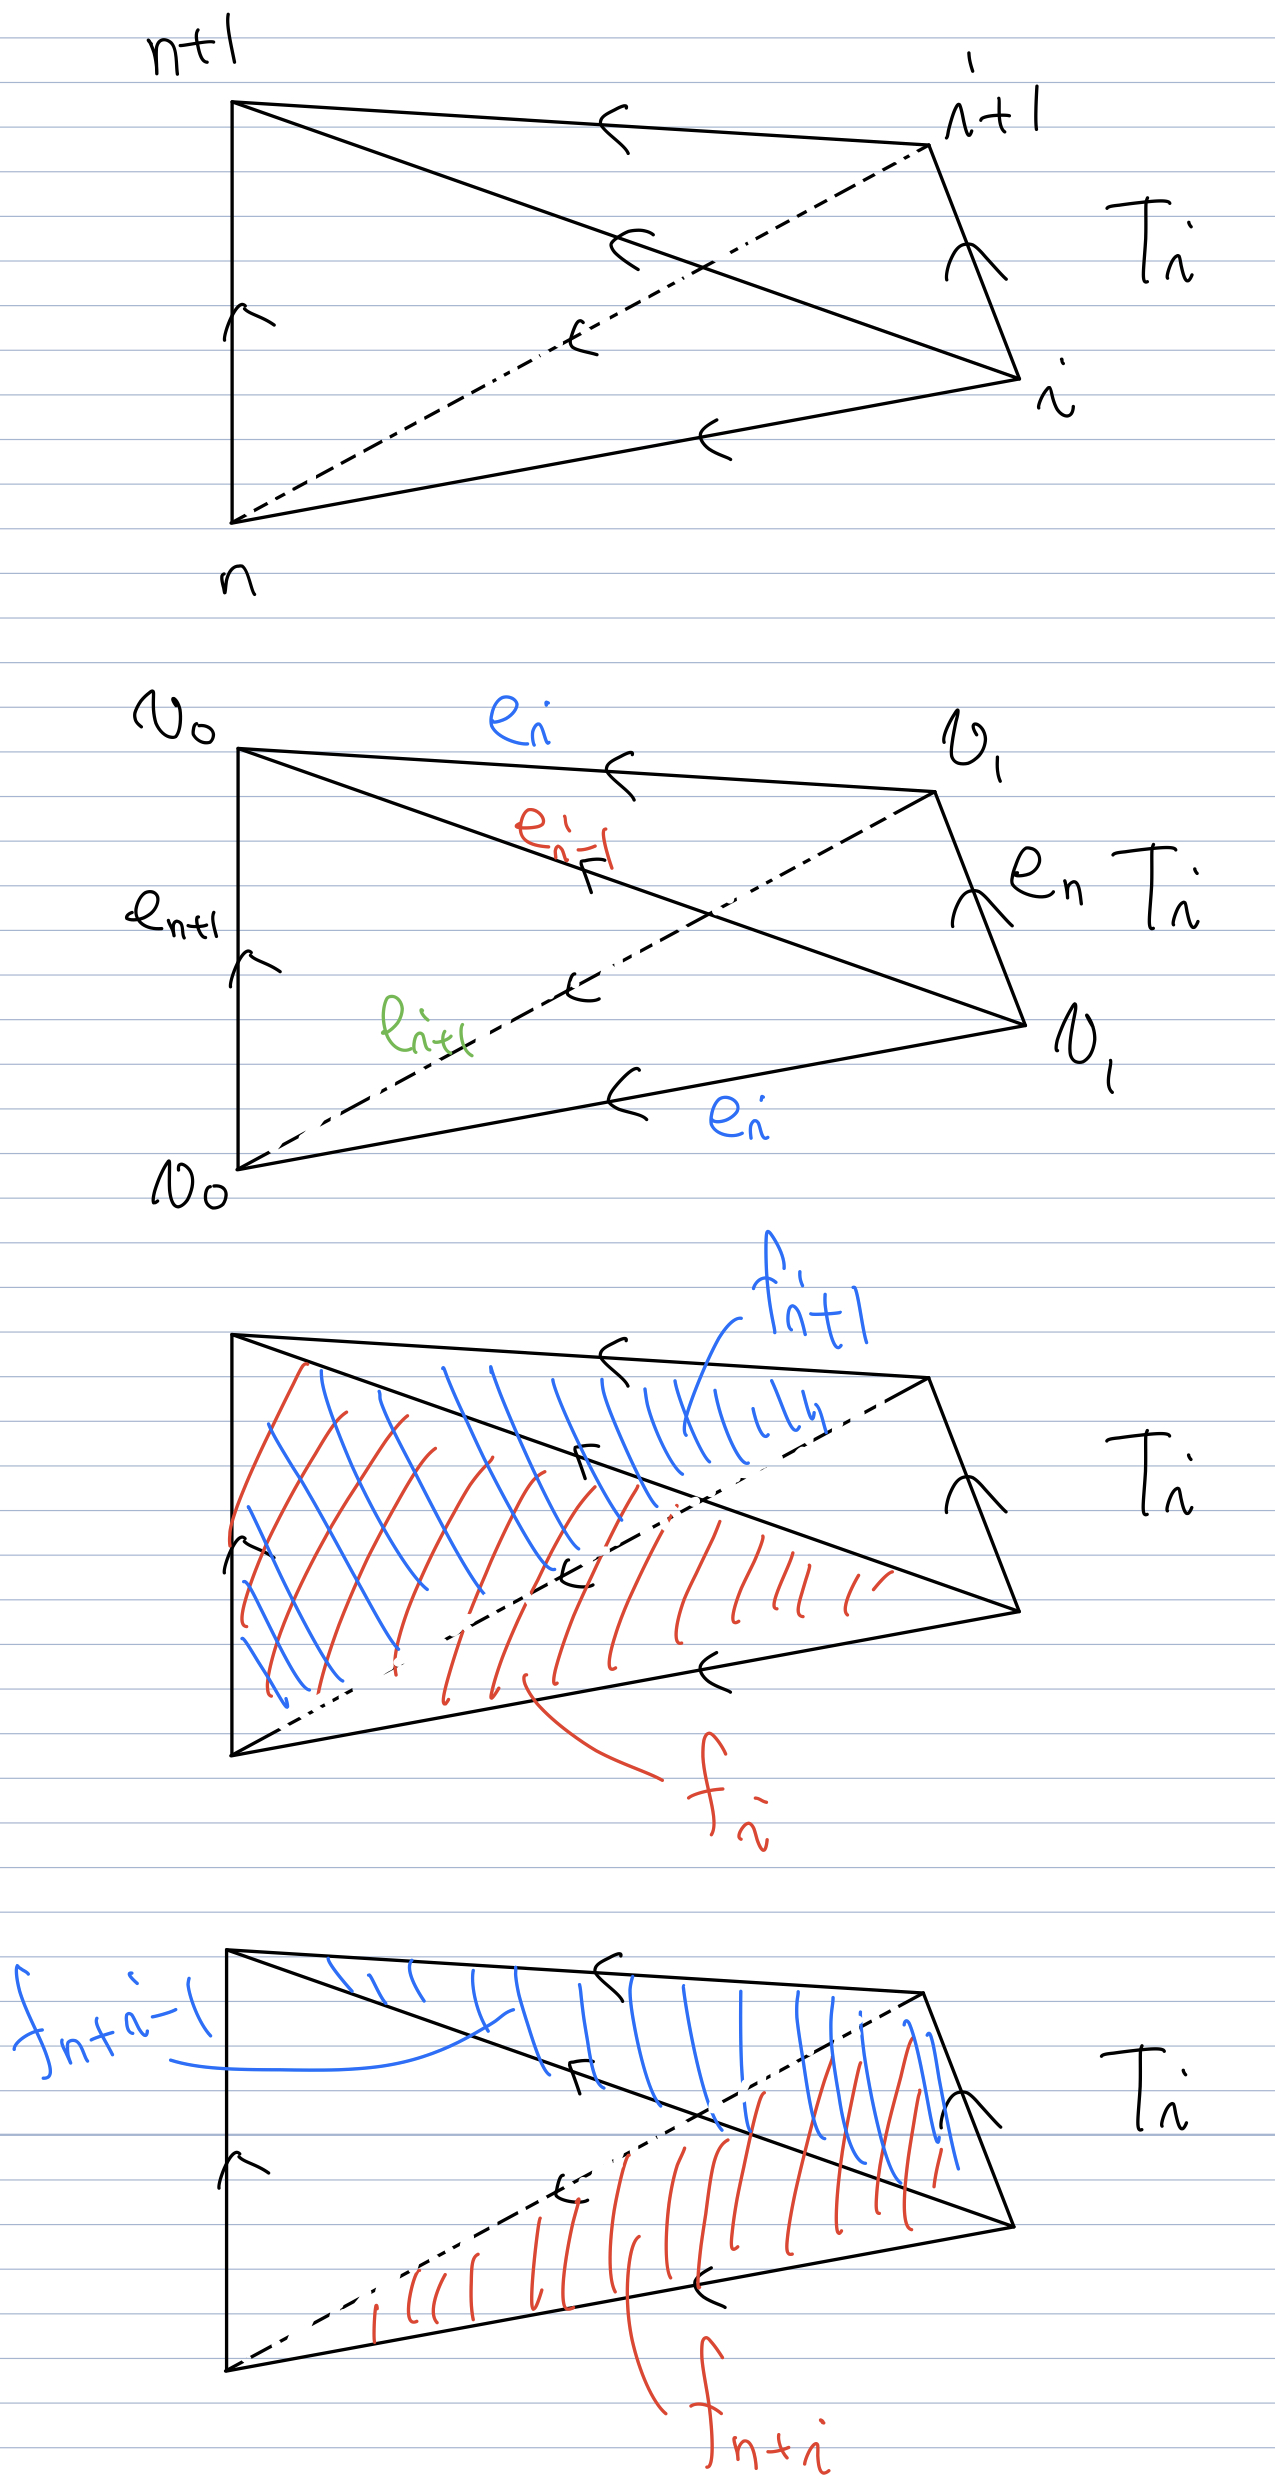 n+1
i+1
T_i
i
n
v_0
e_i
v_1
e_{i-1}
e_n
T_i
e_{n+1}
e_{i+1}
v_1
e_i
v_0
f_{i+1}
T_i
f_i
f_{n+i-1}
T_i
f_{n+i}